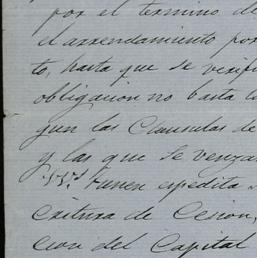 por el termino de
el arrendamiento por
to, hasta que se verifi
obligacion no basta la
guen las Clausulas de
y las que se venzan
tienen espedita
critura de Cesion,
cion del Capital